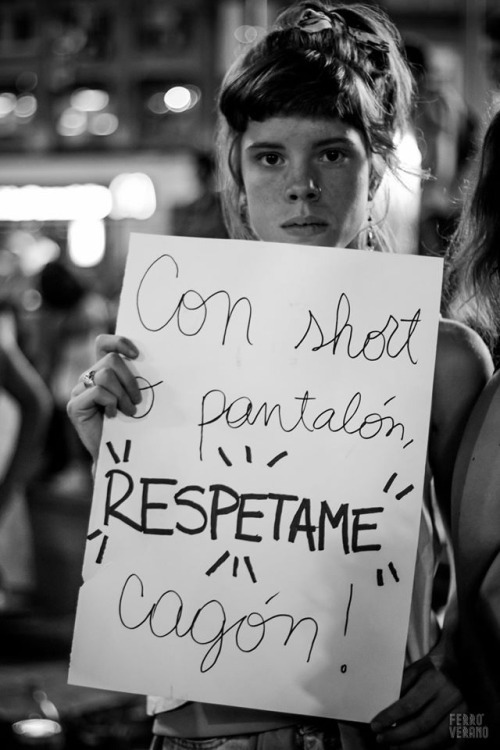 Con short
o pantalón,
RESPETAME
cagón!
FERRO
VERANO